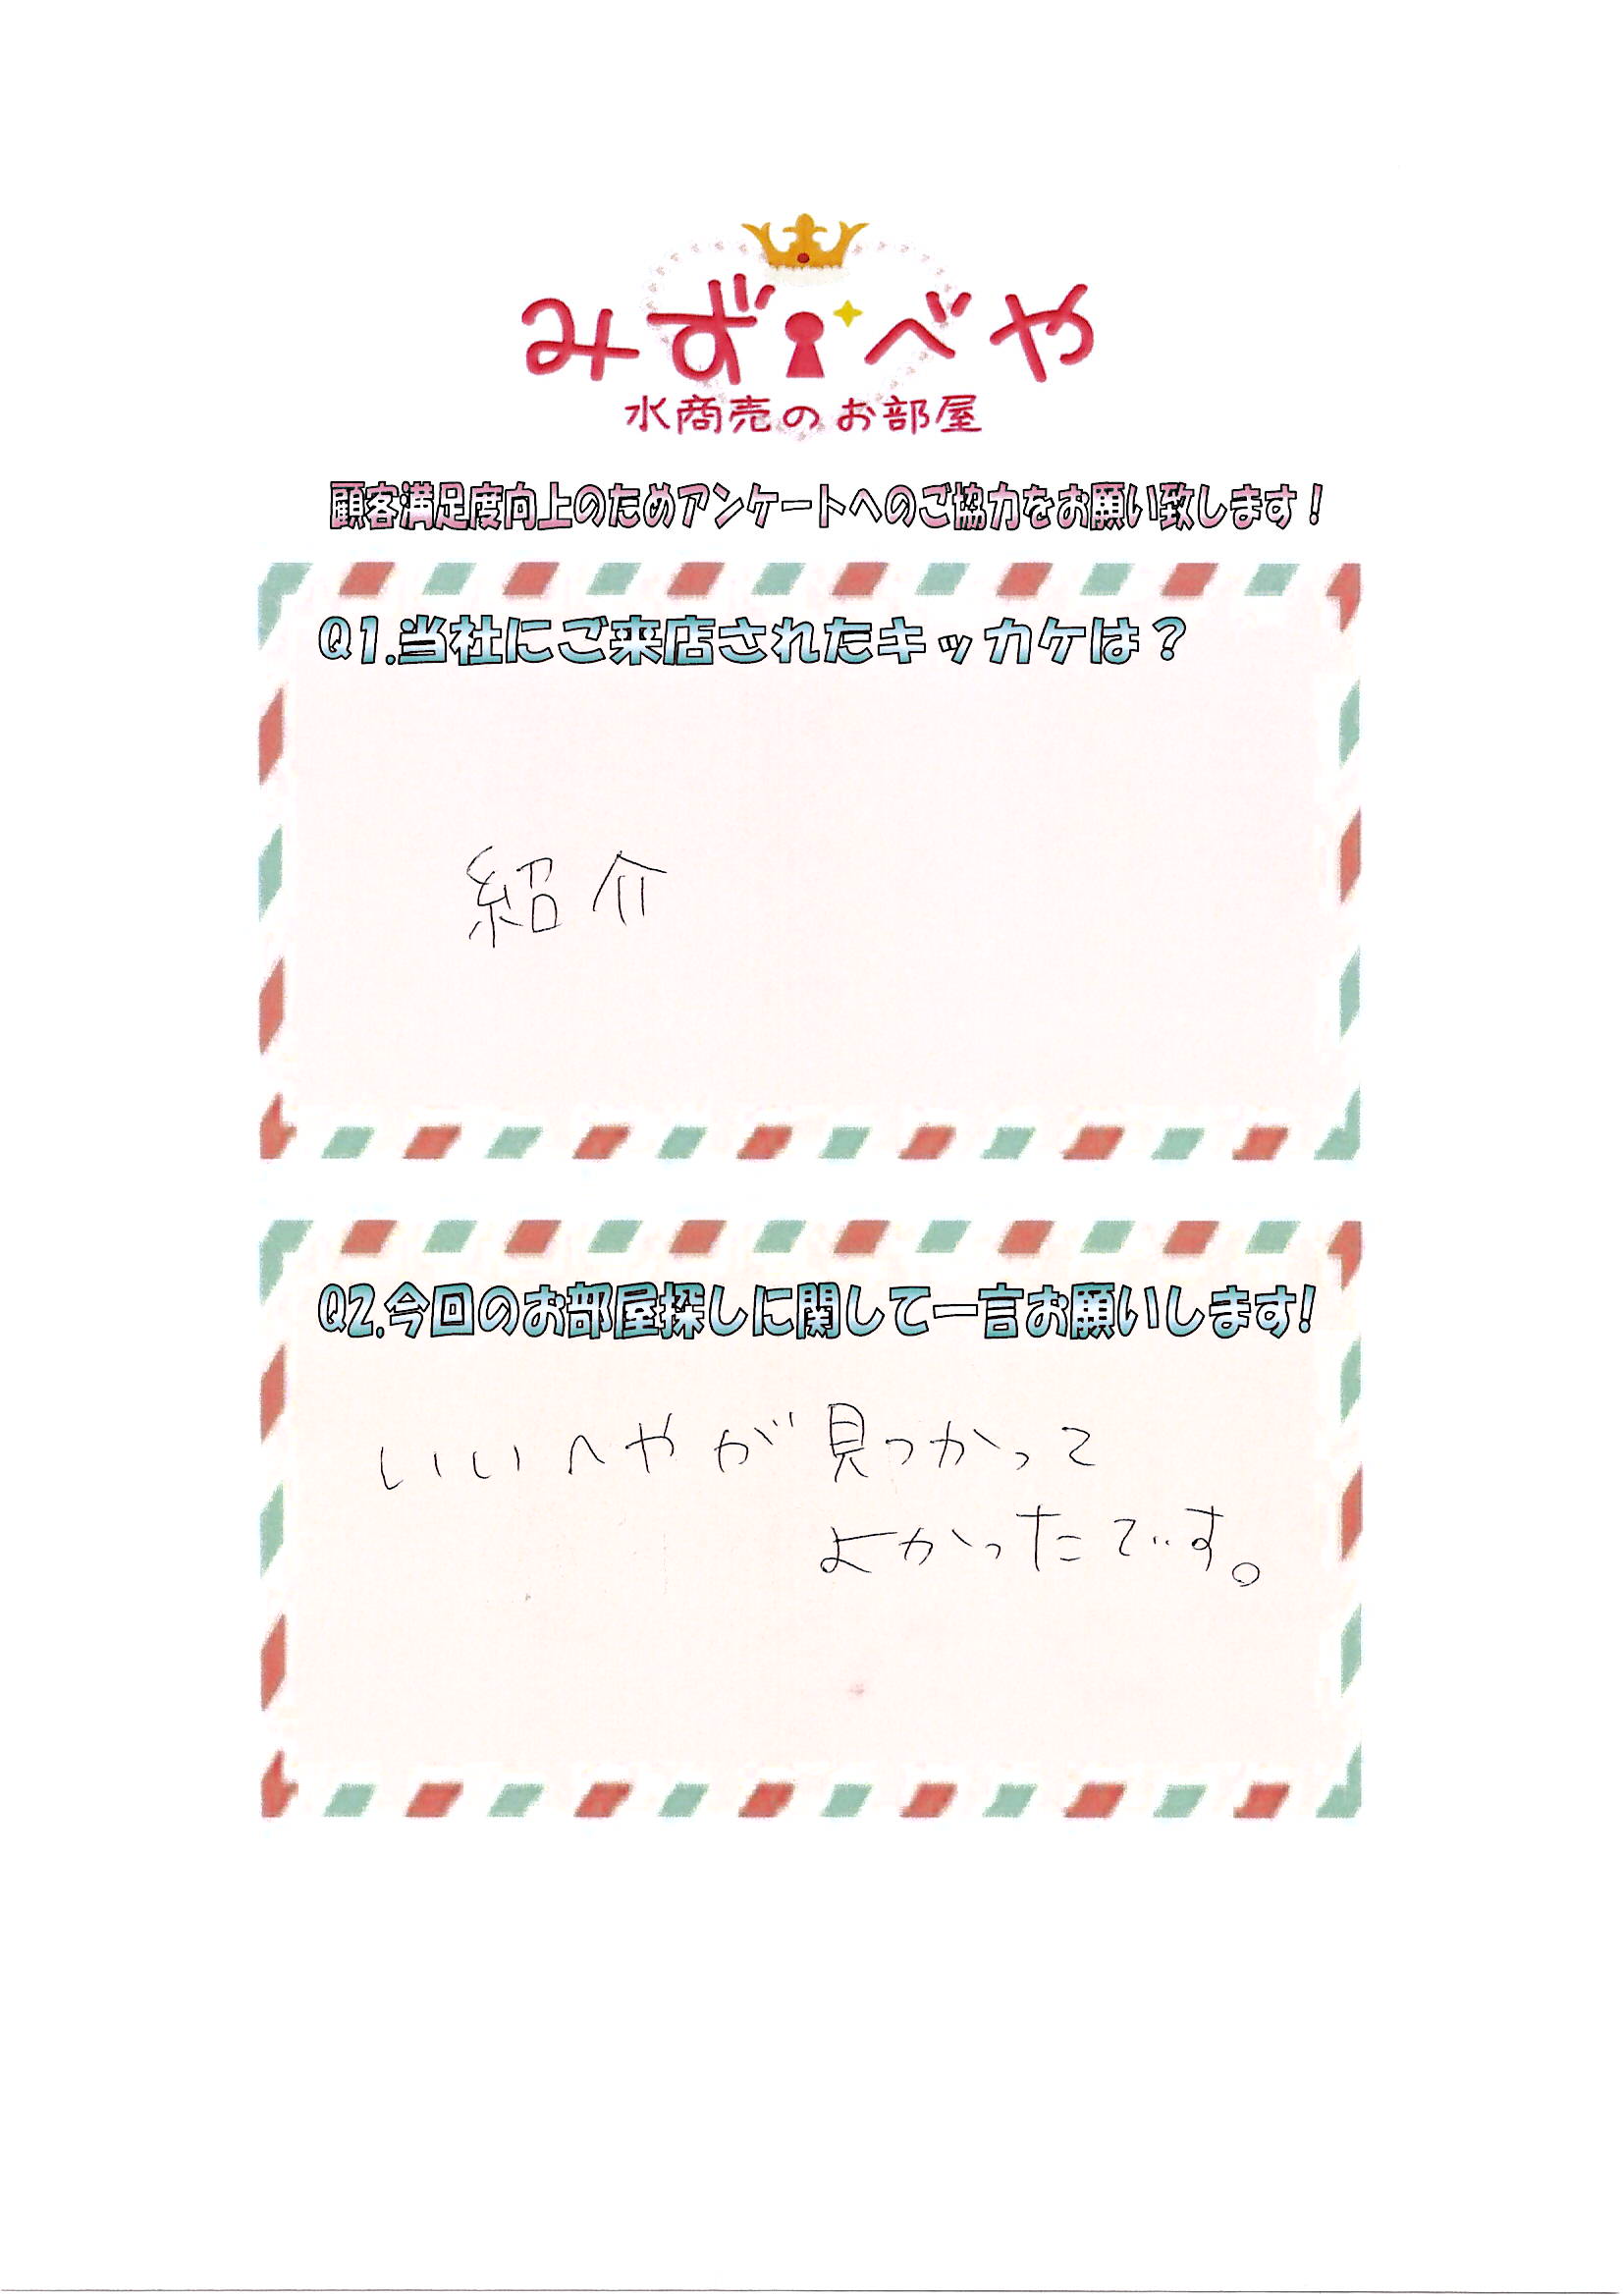 みずべや
水商売のお部屋
顧客満足度向上のためアンケートへのご協力をお願い致します！
Q1.当社にご来店されたキッカケは？
紹介
Q2.今回のお部屋探しに関して一言お願いします!
いいへやが見つかって
よかったです。